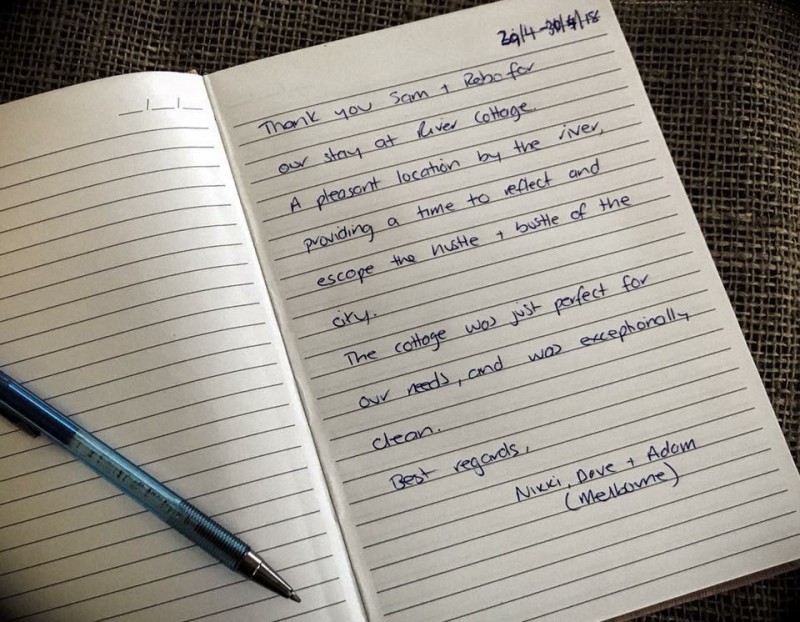 __/__/__
29/4-30/4/18
Thank you Sam + Rebo for
our stay at River Cottage.
A pleasant location by the river,
providing a time to reflect and
escape the hustle + bustle of the
city.
The cottage was just perfect for
our needs, and was exceptionally
clean.
Best regards,
Nikki, Dave + Adam
(Melbourne)